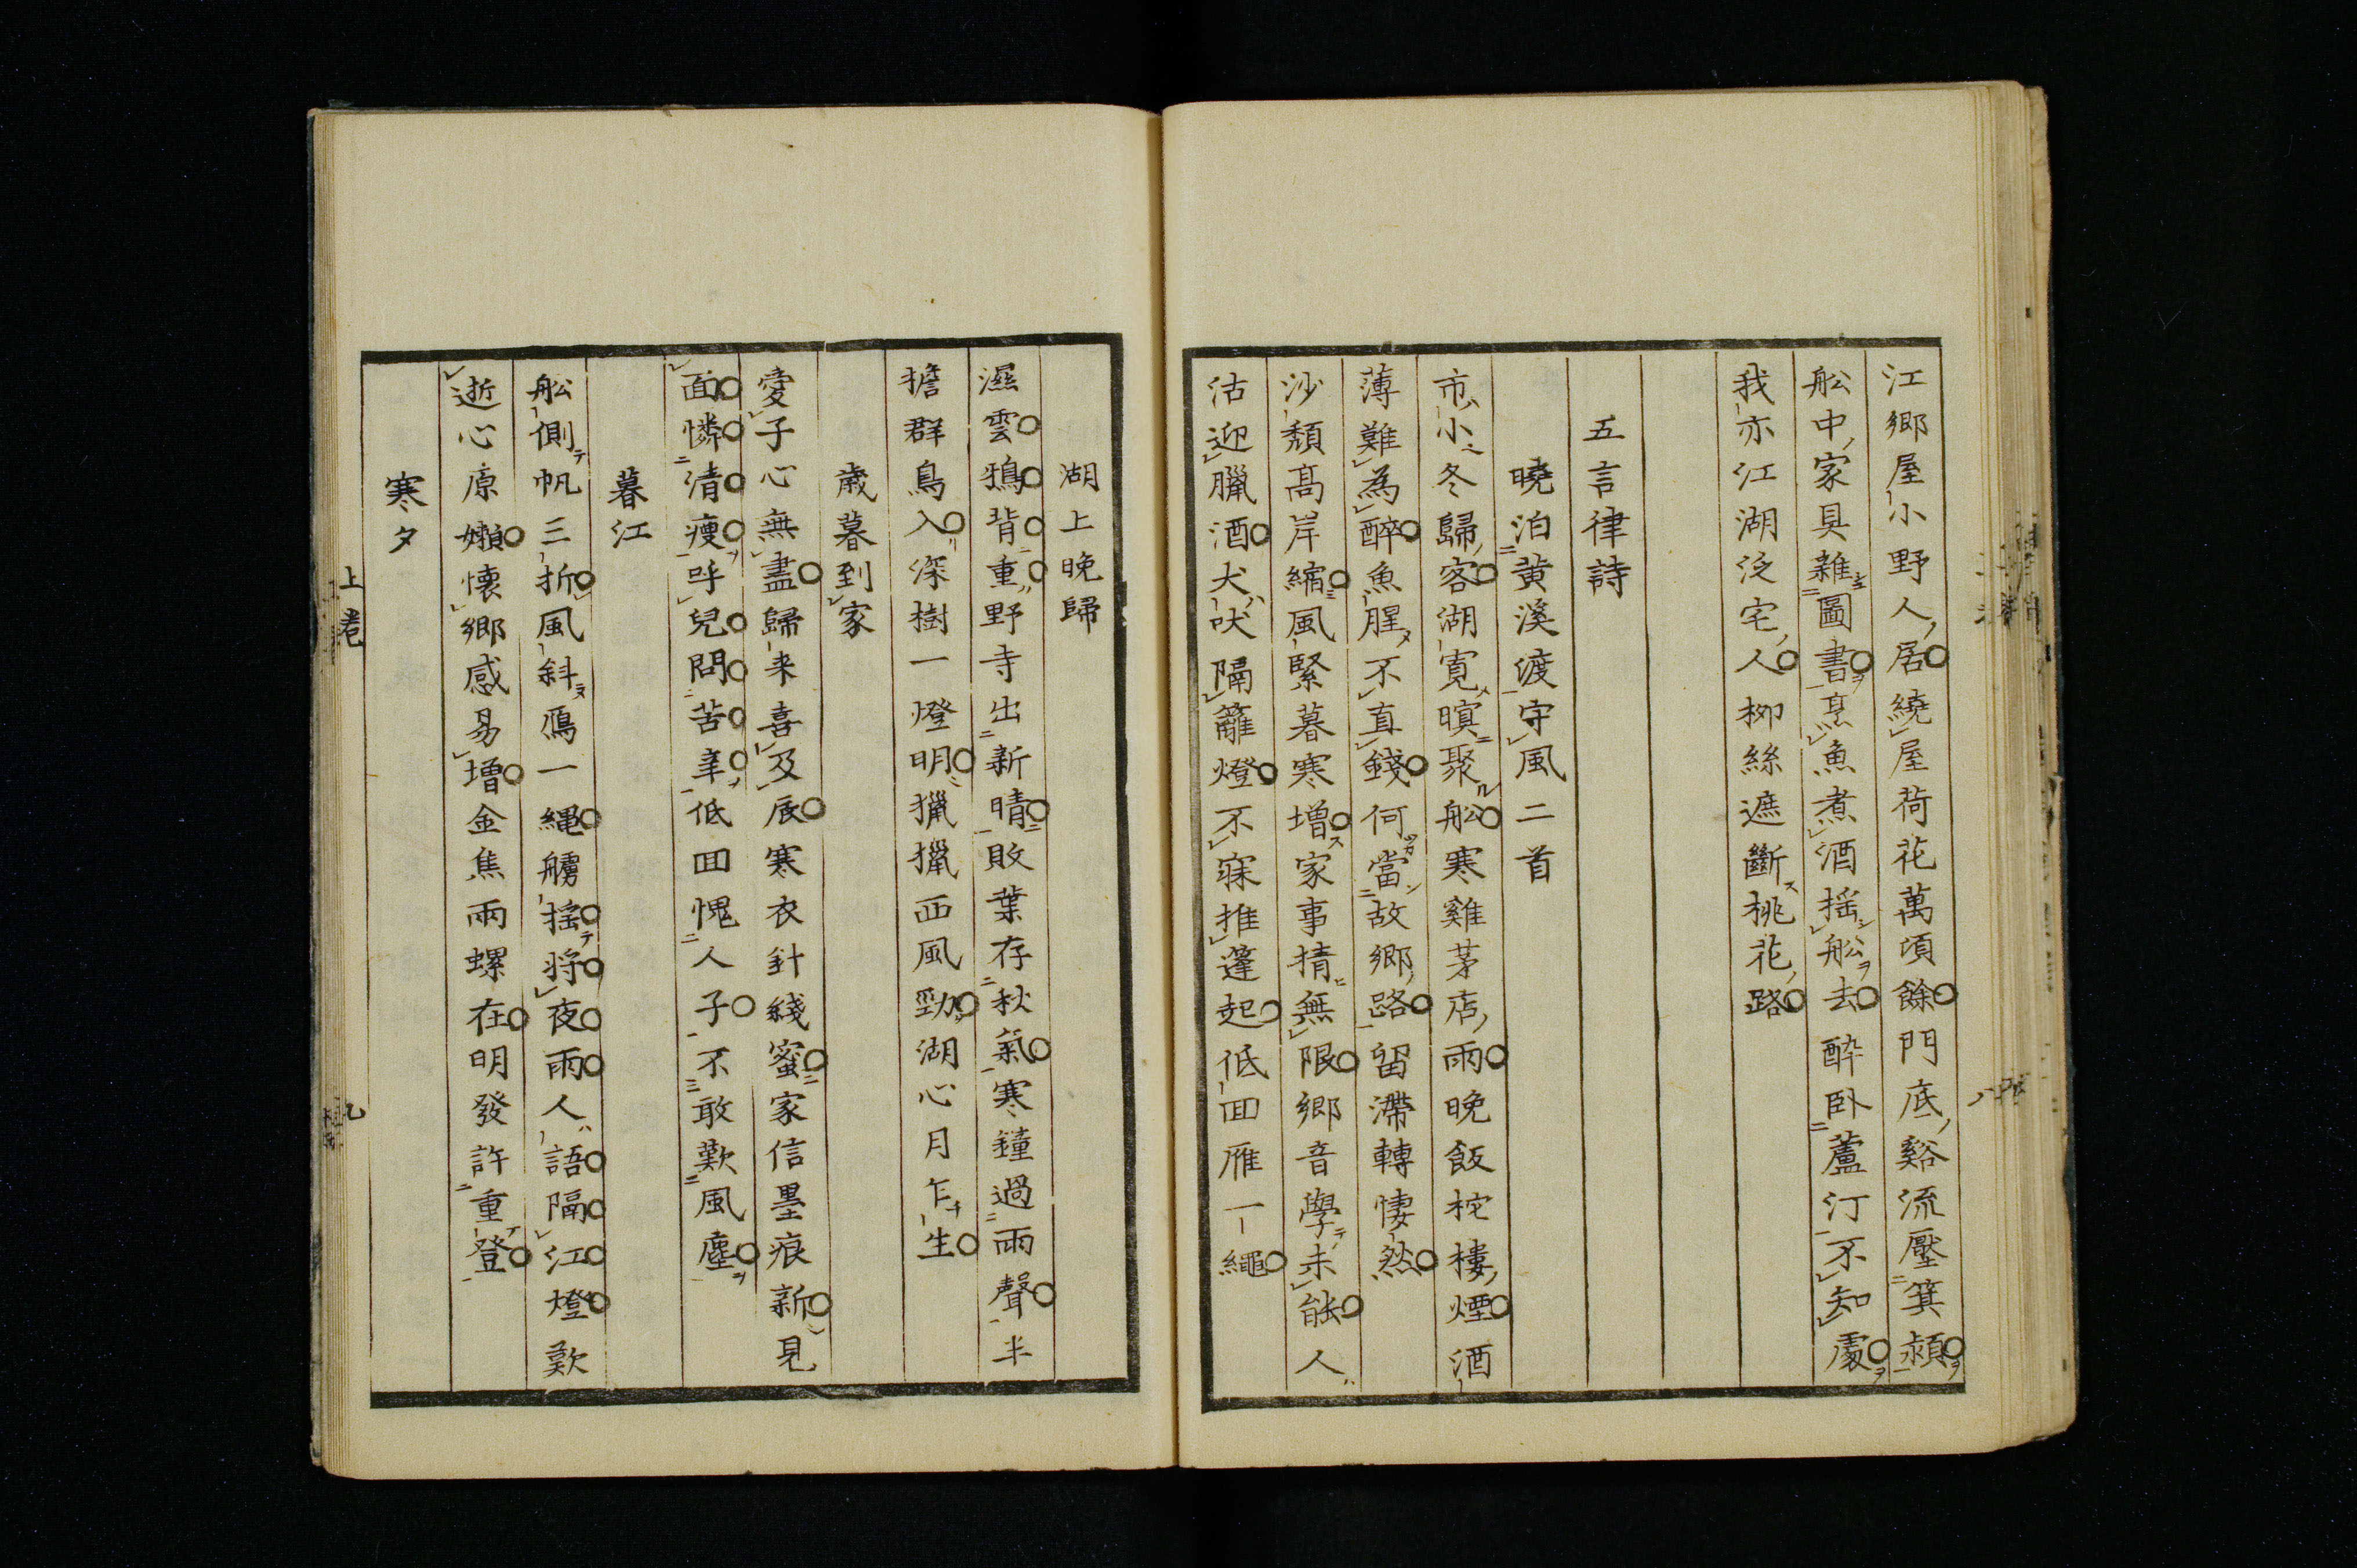 江鄉屋小野人居繞屋荷花萬頃餘門底谿流壓箕潁
舩中家具雜圖書烹魚煮酒揺舩去酔臥蘆汀不知處
我亦江湖泛宅人柳絲遮斷桃花路
五言律詩
曉泊黄溪渡守風二首
市小冬歸客湖寛暝聚舩寒雞茅店雨晚飯柁樓煙酒
薄難為醉魚腥不直錢何當故鄉路留滯轉悽然
沙頽髙岸縮風緊暮寒增家事猜無限鄉音學未能人
沽迎臘酒犬吠隔籬燈不寐推篷起低回雁一繩
湖上晚歸
濕雲鴉背重野寺出新晴敗葉存秋氣寒鐘過雨聲半
擔群鳥入深樹一燈明獵獵西風勁湖心月乍生
歳暮到家
愛子心無盡歸来喜及辰寒衣針綫蜜家信墨痕新見
面憐清瘦呼兒問苦辛低回愧人子不敢歎風塵
暮江
舩側帆三折風斜鴈一繩艣揺将夜雨人語隔江燈歎
逝心原嬾懐鄉感易增金焦兩螺在明發許重登
寒夕
上卷
九
八